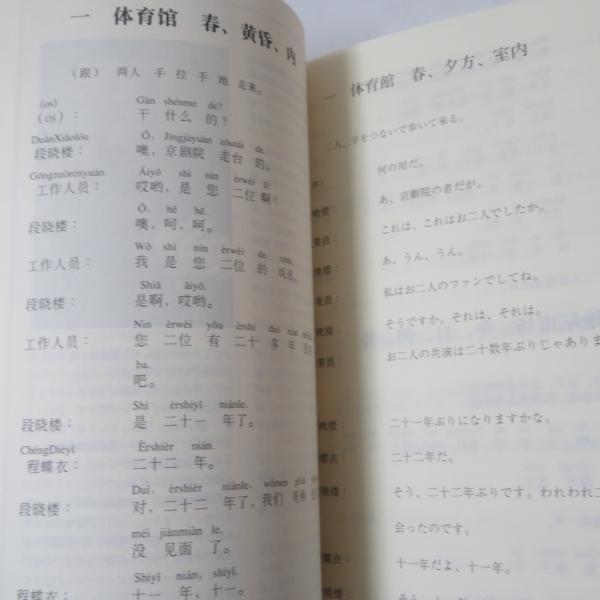 一 体育馆 春、黄昏、内
（跟） 两人 手 拉 手 地 走来。
(os) Gàn shénme de?
(os)： 干 什么 的？
DuànXiǎolóu Ō, Jīngjùyuàn zǒutái de.
段晓楼： 噢，京剧院 走台 的。
Gōngzuòrényuán Āiyō shì nín èrwèi
工作人员： 哎哟，是 您 二位 啊！
Ō, hē hē.
段晓楼： 噢，呵，呵。
Wǒ shì nín èrwèi de
工作人员： 我 是 您 二位 的 戏迷。
Shìa āiyō.
段晓楼： 是啊，哎哟。
Nín èrwèi yǒu èrshí duō nián
工作人员： 您 二位 有 二十 多 年
ba.
吧。
Shì èrshíyī niánle.
段晓楼： 是 二十一 年了。
ChéngDiéyī Èrshíèr nián.
程蝶衣： 二十二 年。
Duì, èrshíèr niánle, wǒmen
段晓楼： 对，二十二 年了，我们
méi jiànmiàn le.
没 见面 了。
Shíyī nián, shíyī.
程蝶衣： 十一 年，十一。
一 体育館 春、夕方、室内
二人、手をつないで歩いて来る。
何の用だ。
あ、京劇院の者だが。
これは、これはお二人でしたか。
あ、うん、うん。
私はお二人のファンでしてね。
そうですか。それは、それは。
お二人の共演は二十数年ぶりじゃありま
二十一年ぶりになりますかな。
程蝶衣： 二十二年だ。
そう、二十二年ぶりです。われわれ
会ったのです。
程蝶衣： 十一年だよ、十一年。